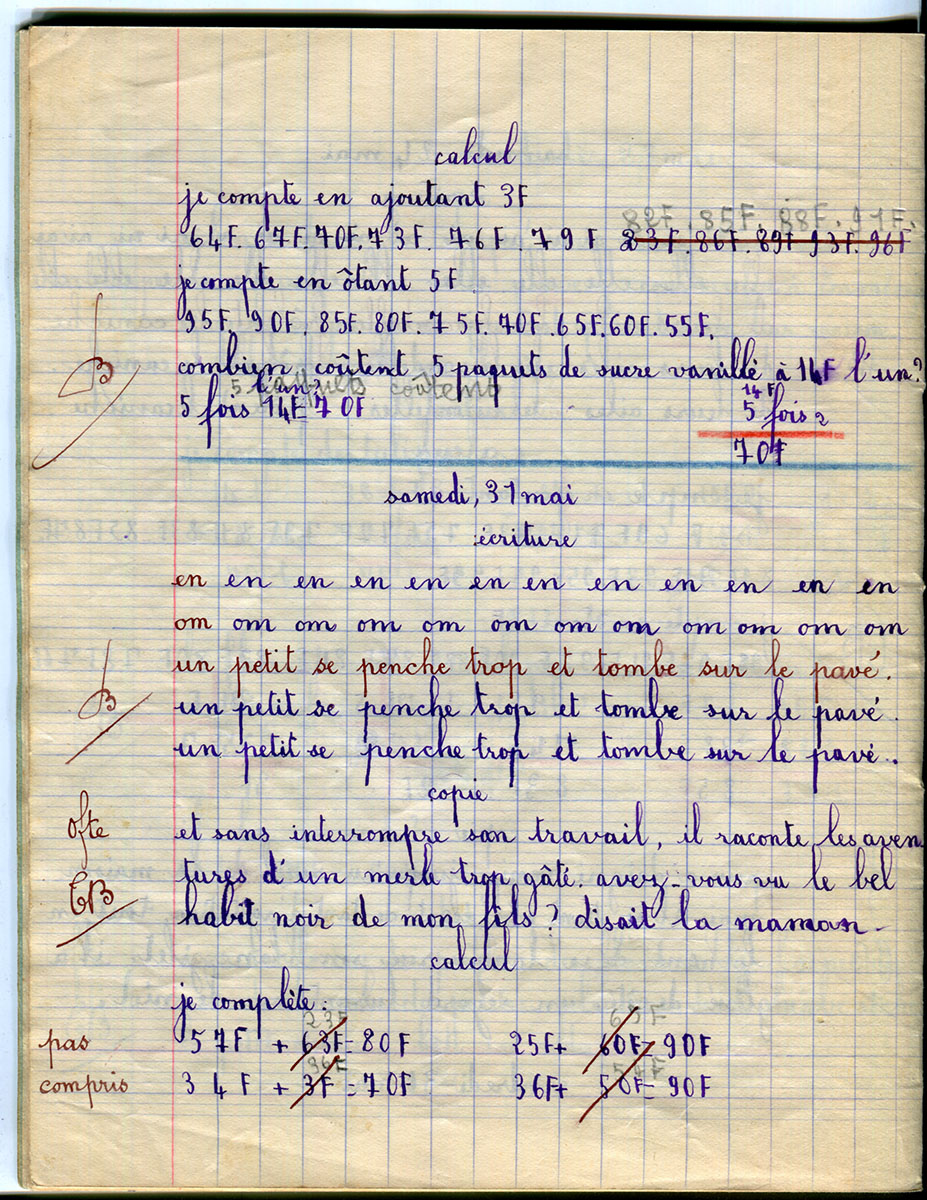 calcul
je compte en ajoutant 3F
82F. 85F. 88F. 91F.
64F. 67F. 70F. 73F. 76F. 79F 23F. 86F. 89F. 93F. 96F
je compte en ôtant 5F
95F. 90F. 85F. 80F. 75F. 70F. 65F. 60F. 55F.
B
combien coûtent 5 paquets de sucre vanillé à 14F l'un?
5 paquets coûtent
l'un?
14F
5 fois 14F = 70F
5 fois 2
70F
samedi, 31 mai
écriture
en en en en en en en en en en en en
om om om om om om om om om om om om
un petit se penche trop et tombe sur le pavé.
B
un petit se penche trop et tombe sur le pavé.
un petit se penche trop et tombe sur le pavé.
copie
et sans interrompre son travail, il raconte les aven
tures d'un merle trop gâté. avez-vous vu le bel
TB
habit noir de mon fils? disait la maman-
calcul
je complète:
23F 65F
pas 57F + 63F = 80F 25F + 60F = 90F
36F 54F
compris 34F + 3F = 70F 36F + 50F = 90F